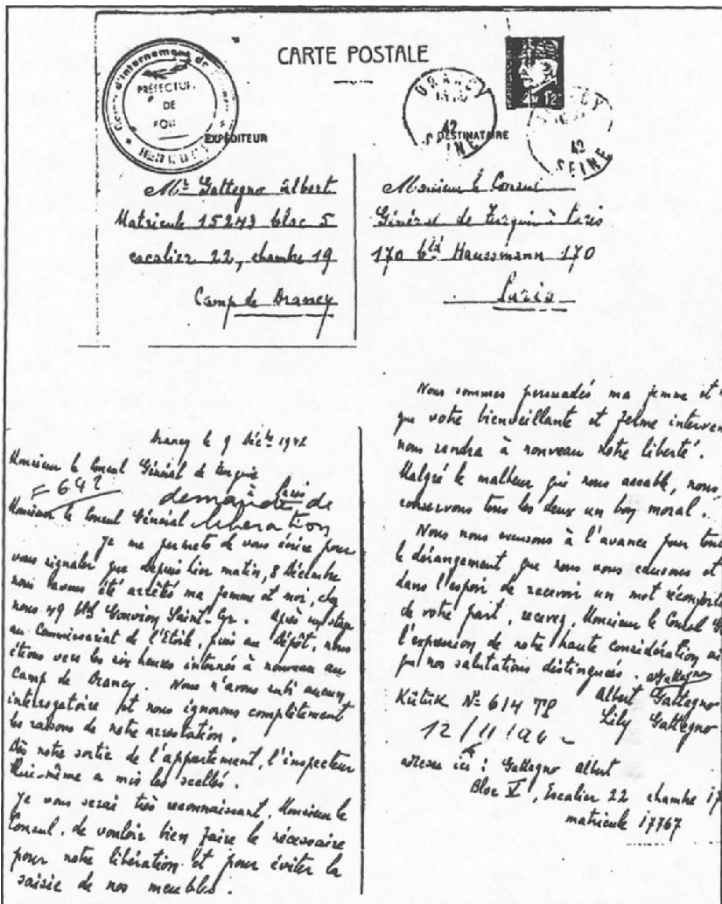 CARTE POSTALE
PREFECTURE
DE
DRANCY
42
SEINE
42
SEINE
EXPÉDITEUR
Mr Gattegno Albert
Matricule 15243 bloc 5
escalier 22, chambre 19
Camp de Drancy
DESTINATAIRE
Monsieur le Consul
Général de Turquie à Paris
170 bld Haussmann 170
Paris
Drancy le 9 Déc 1942
Monsieur le Consul Général de Turquie
à Paris
F 642 demande de
Monsieur le Consul Général libération
Je me permets de vous écrire pour
vous signaler que depuis hier matin, 8 Décembre
nous avons été arrêtés ma femme et moi, chez
nous 49 bld Gouvion Saint-Cyr. Après
au Commissariat de l'Etoile, puis au dépôt, nous
étions vers les six heures internés à nouveau au
camp de Drancy. Nous n'avons subi aucun
interrogatoire et nous ignorons complètement
les raisons de notre arrestation.
Dès notre sortie de l'appartement, l'inspecteur
lui-même a mis les scellés.
Je vous serai très reconnaissant, Monsieur le
Consul, de vouloir bien faire le nécessaire
pour notre libération et pour éviter la
saisie de nos meubles.
Nous sommes persuadés ma femme et
que votre bienveillante et ferme interven
nous rendra à nouveau notre liberté.
Malgré le malheur qui nous accable, nous
conservons tous les deux un bon moral.
Nous nous excusons à l'avance pour tout
le dérangement que nous vous causons et
dans l'espoir de recevoir un mot réconfort
de votre part, recevez, Monsieur le Consul G
l'expression de notre haute considération ai
que nos salutations distinguées. AGattegno
Albert Gattegno
Kütük No 614 TP Lily Gattegno
12/11/942
adresse ici : Gattegno Albert
Bloc V, Escalier 22 chambre 17
matricule 17767